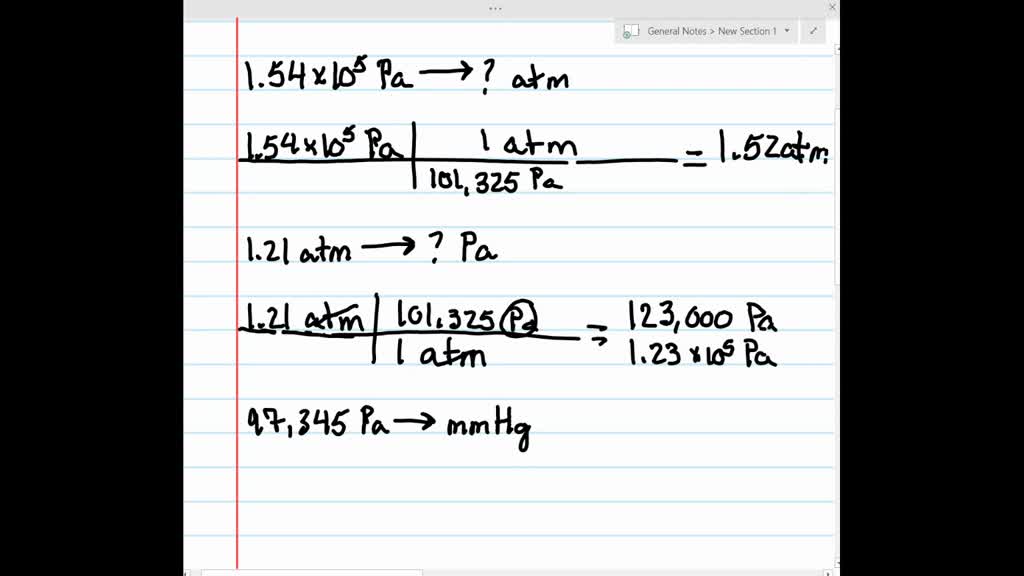 General Notes > New Section 1
1.54×10⁵ Pa → ? atm
1.54×10⁵ Pa | 1 atm
= 1.52atm
101,325 Pa
1.21 atm → ? Pa
1.21 atm | 101,325 Pa
= 123,000 Pa
1 atm
1.23×10⁵ Pa
97,345 Pa → mmHg